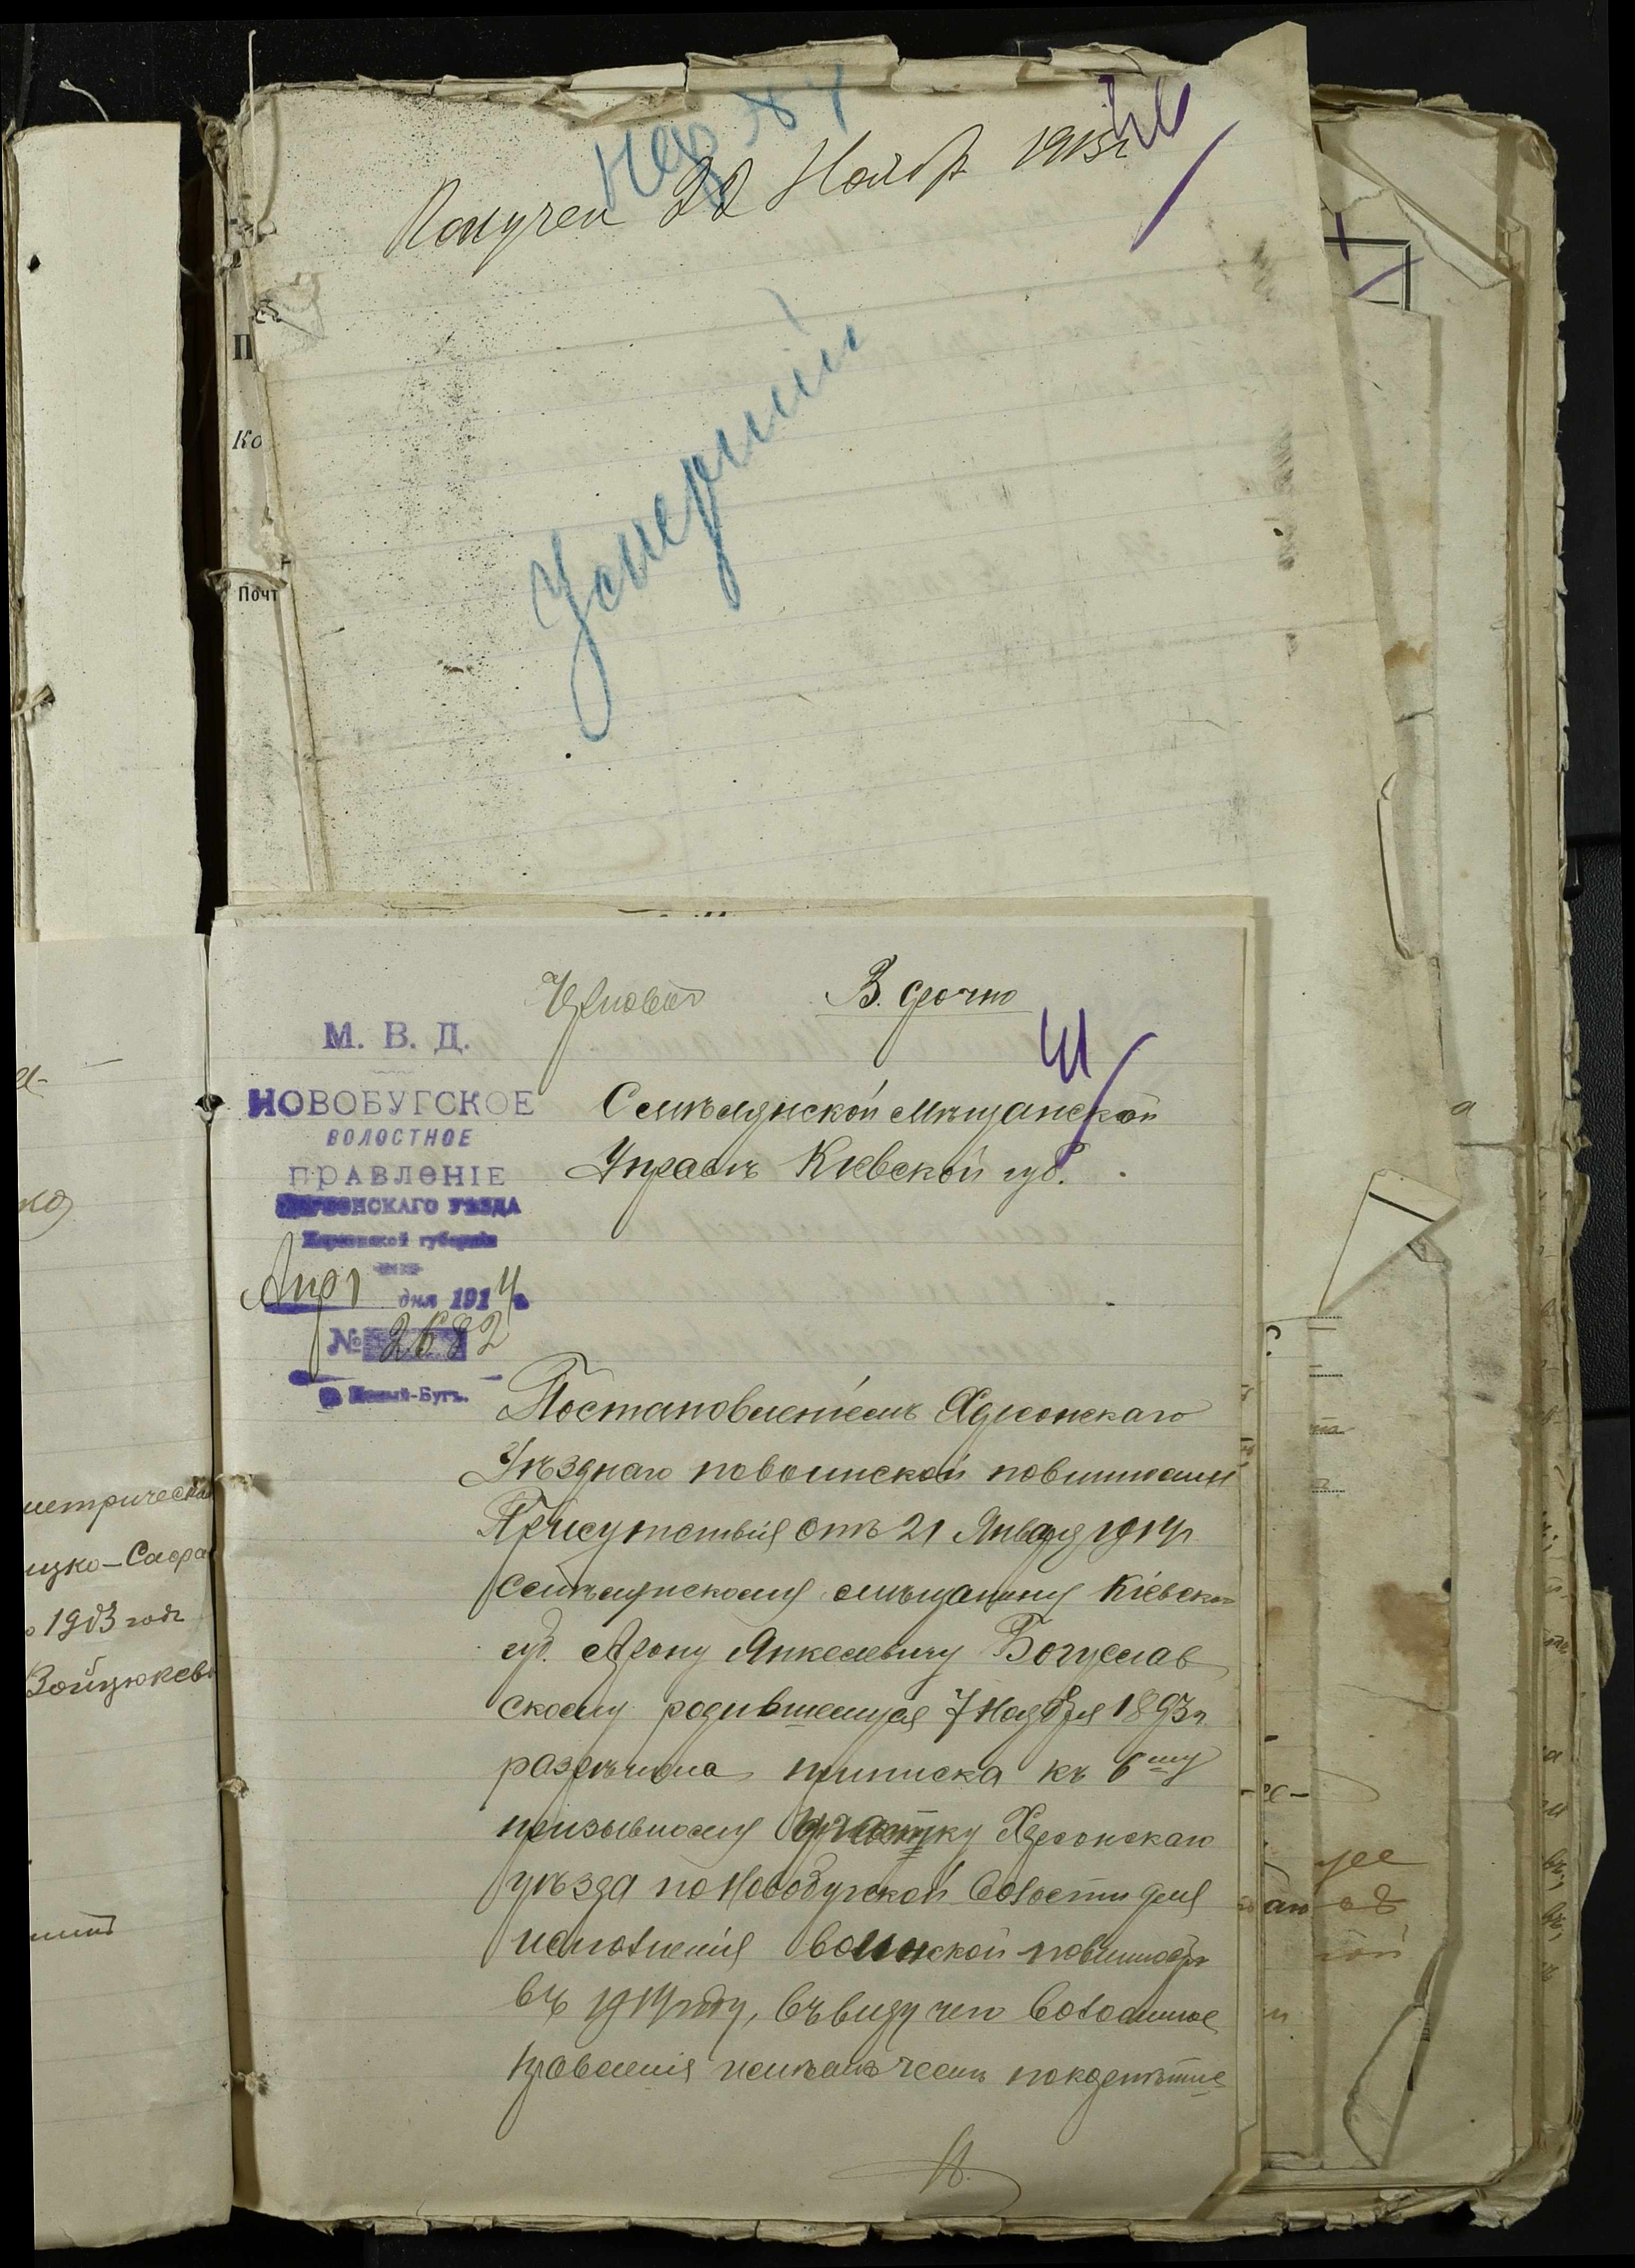 Получен 22 Нояб 1913 г
Умерший
Черновой
В. срочно
М. В. Д.
НОВОБУГСКОЕ
ВОЛОСТНОЕ
ПРАВЛЕНІЕ
ХЕРСОНСКАГО УѢЗДА
Херсонской губерніи
Апр 1 дня 1914 г.
№ 2682
Новый-Бугъ.
41
Смѣлянской Мѣщанской
Управѣ Кіевской губ.
Постановленіемъ Херсонскаго
Уѣзднаго по воинской повинности
Присутствія отъ 21 Января 1914 г
Смѣлянскому мѣщанину Кіевской
губ. Арону Янкелевичу Богуслав
скому родившемуся 7 Ноября 1893 г.
разрѣшена приписка къ 6му
призывному участку Херсонскаго
уѣзда по Новобугской волости для
исполненія воинской повинности
въ 1914 году, въ виду чего Волостное
правленія
П
Ко
Почт
метрическа
ицко-Сафра
1903 годъ
Войцюкев